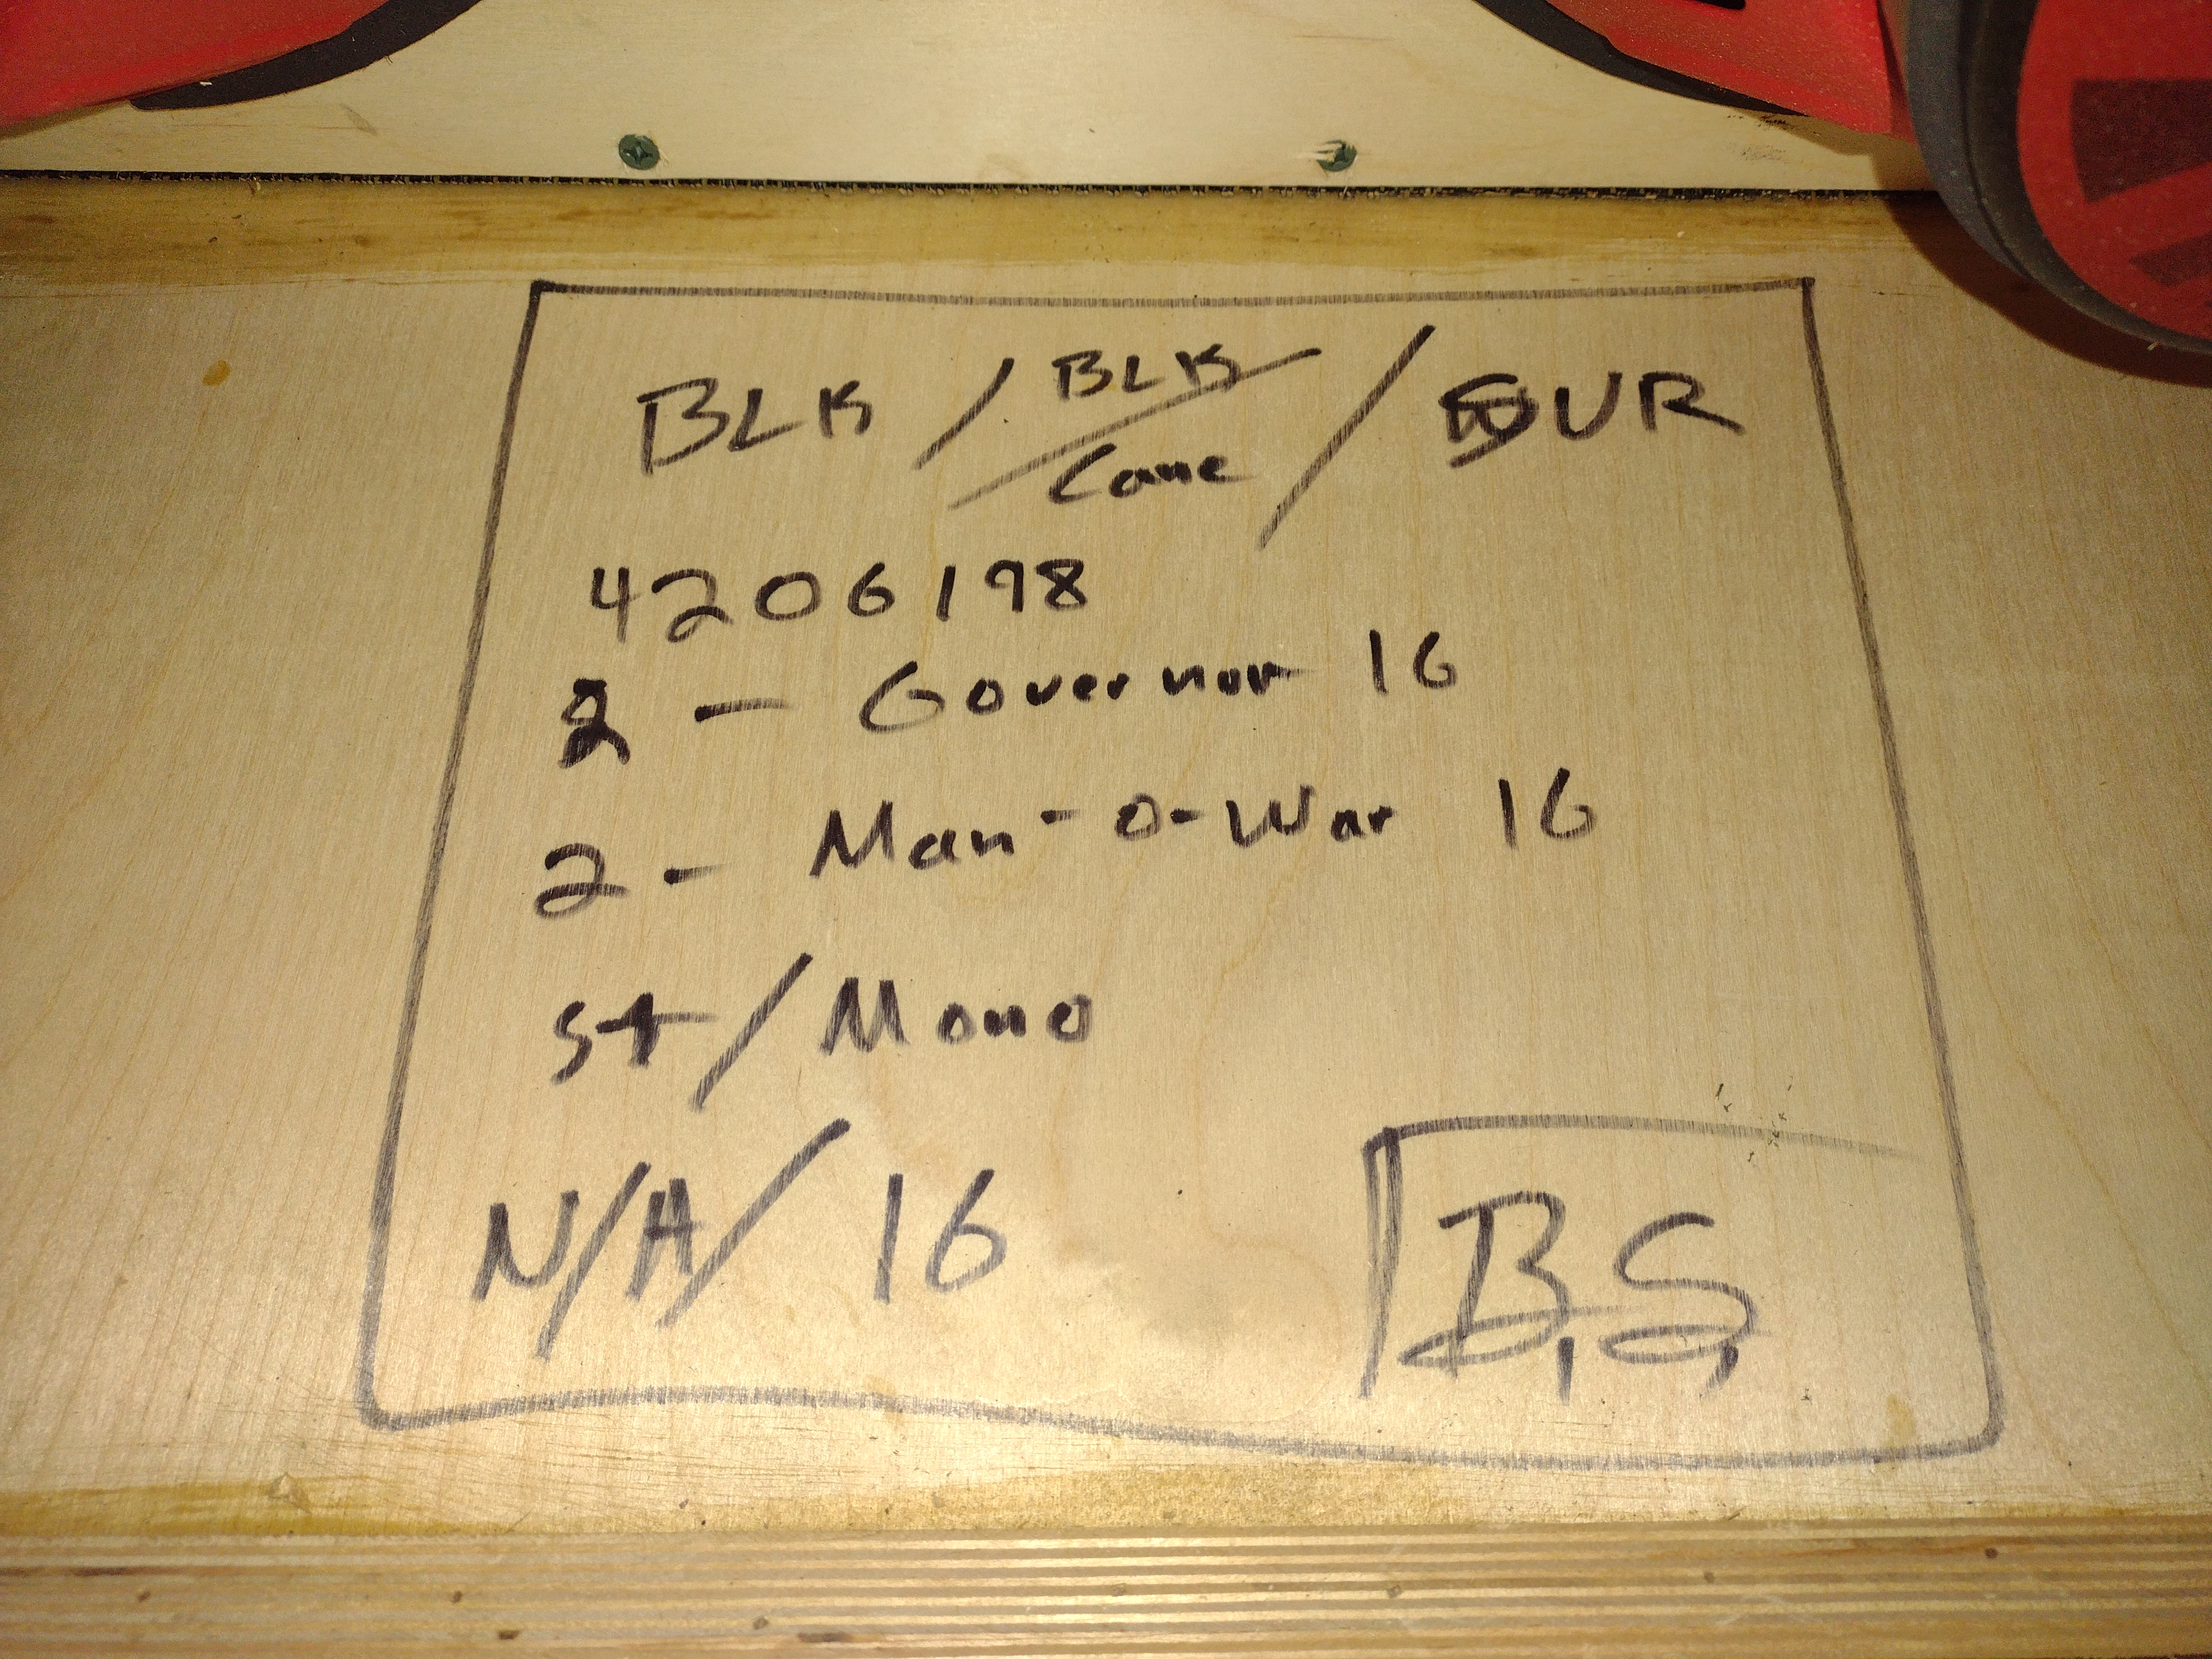 BLK / BLK / Cane / EUR
4206198
2 - Governor 16
2 - Man-O-War 16
st/Mono
N/A/ 16
B.S.